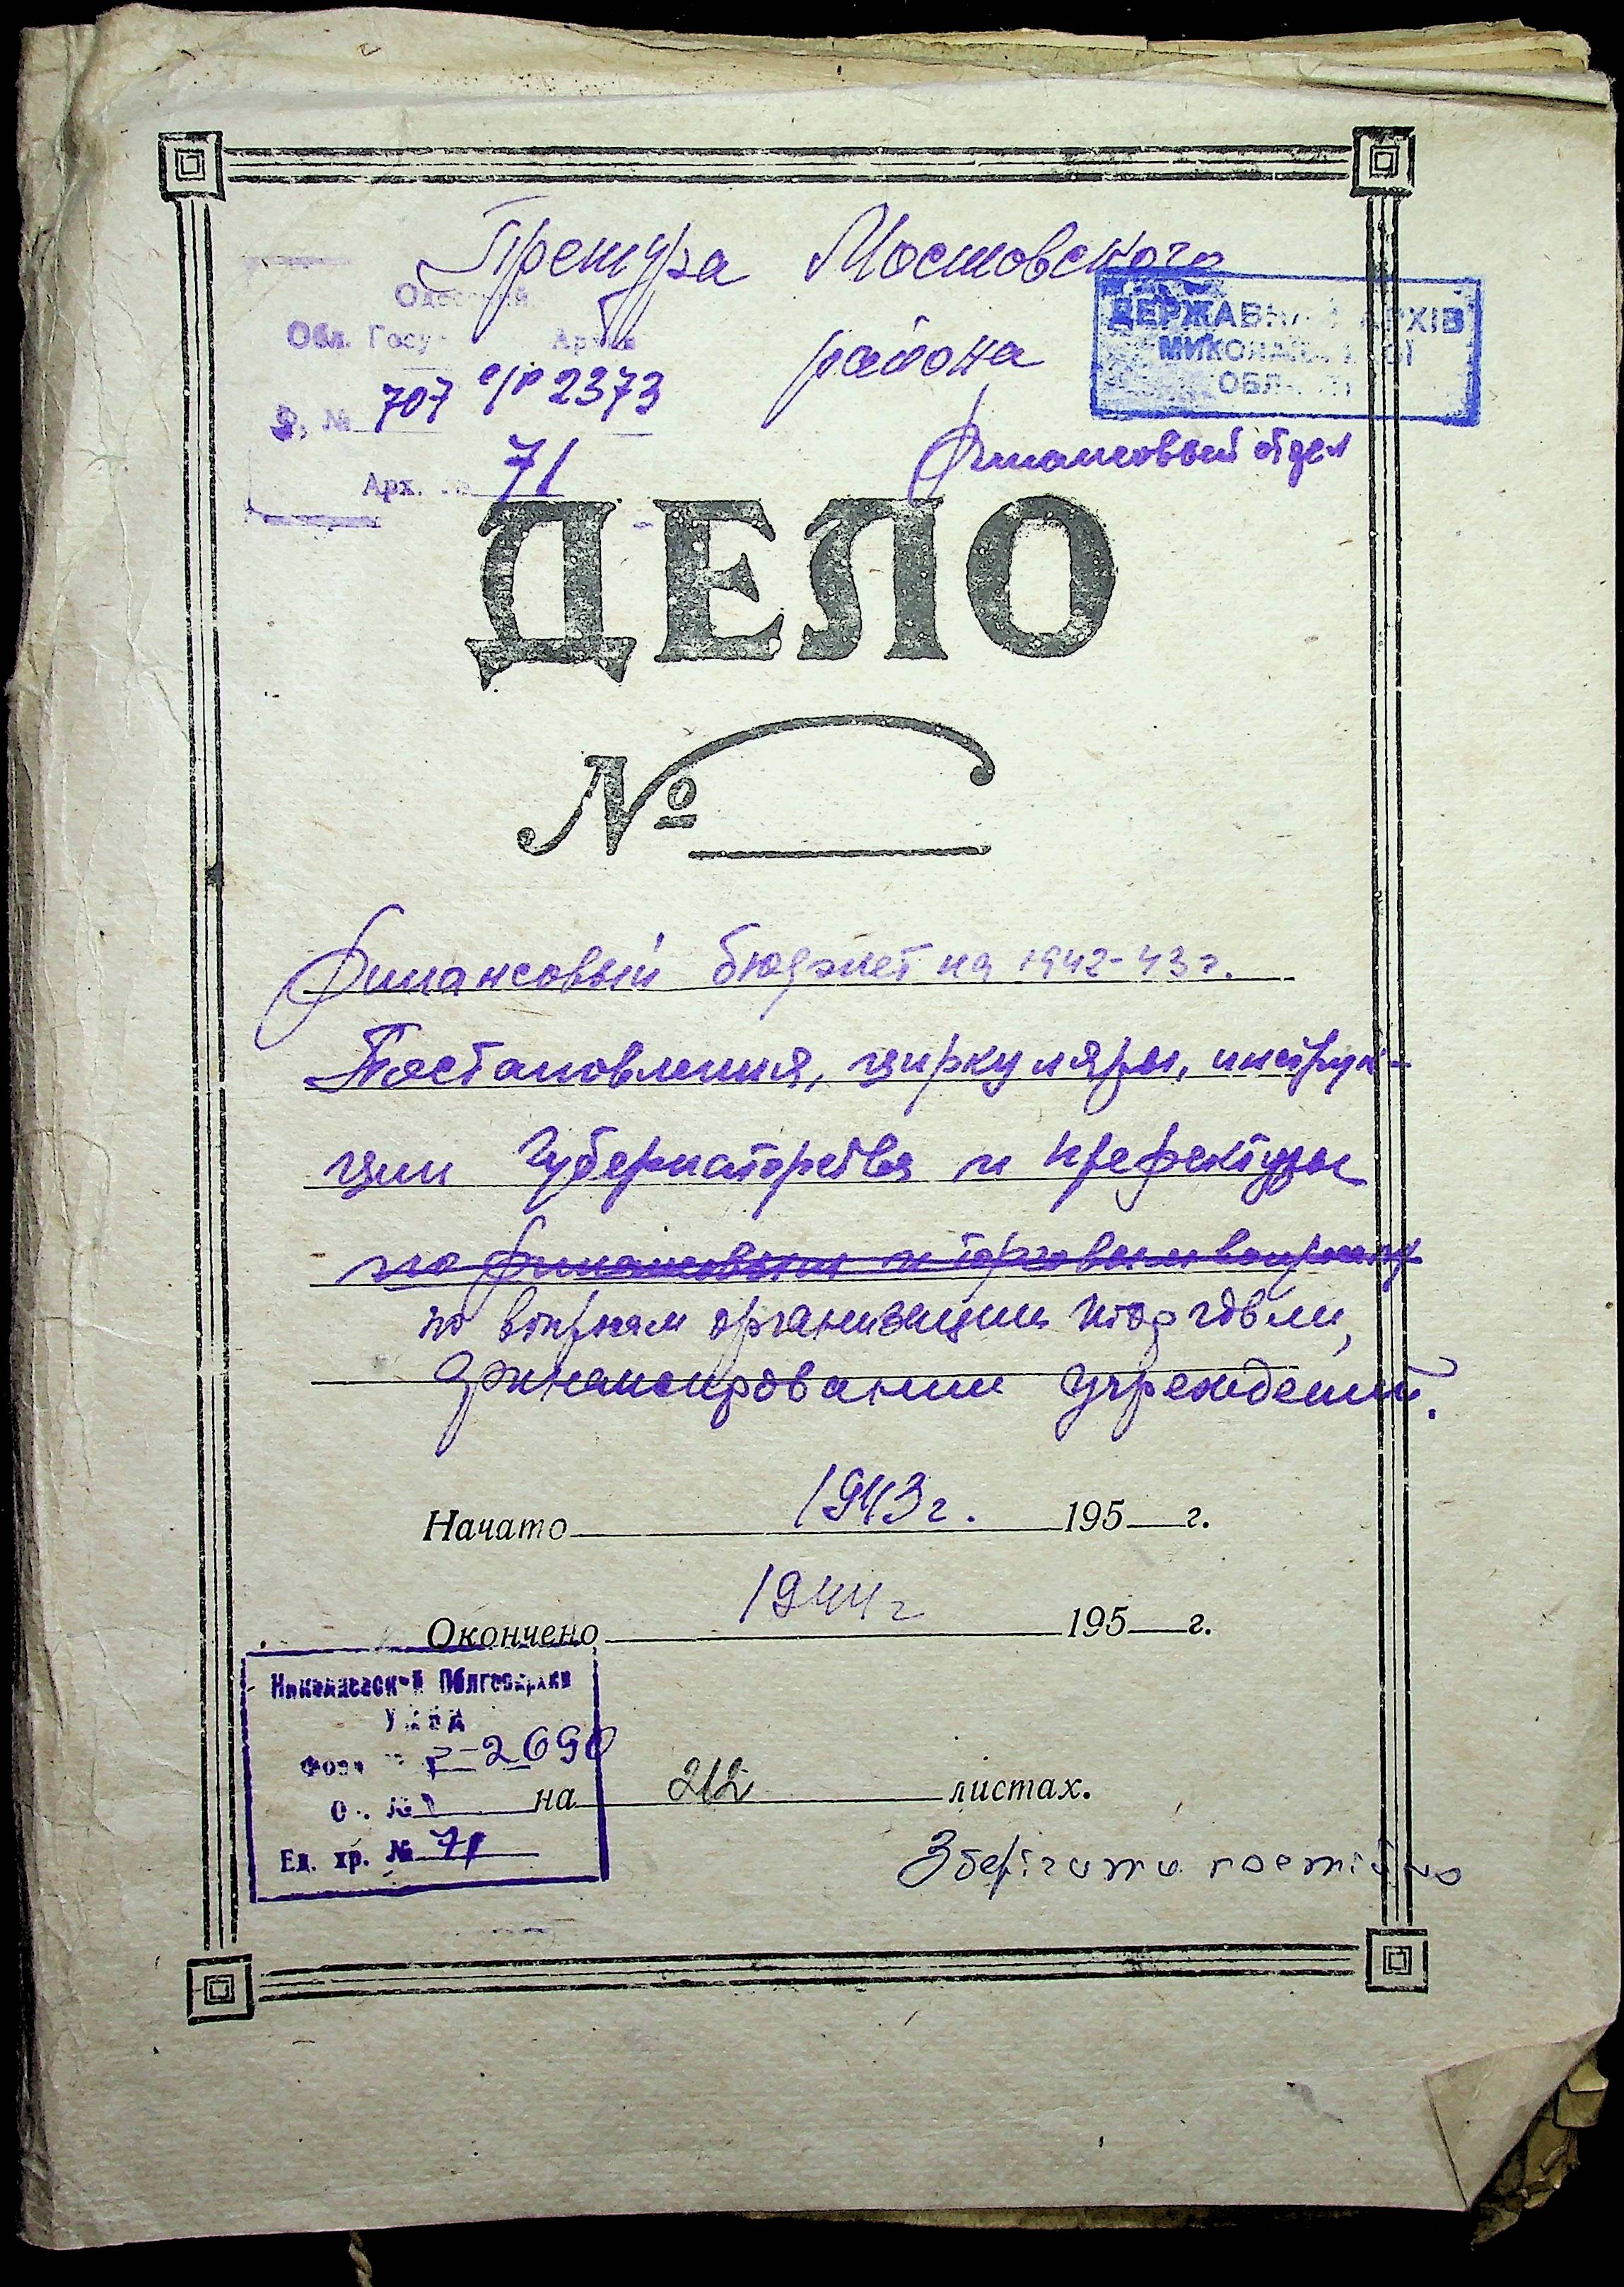 Претура Мостовского
района
Обл. Госу
ДЕРЖАВНИЙ АРХІВ
МИКОЛАЇВСЬКОЇ
ОБЛАСТІ
№ 707 2373
Финансовый отдел
Арх. № 71
ДЕЛО
№
Финансовый бюджет на 1942-43 г.
Постановления, циркуляры, инструк-
ции Губернаторства и префектуры
по финансовым и торговым вопросам
по вопросам организации торговли,
финансировании учреждений.
Начато 1943 г. 195 г.
Окончено 1944 г 195 г.
Николаевский Облгосархив
Р-2690
на 212 листах.
Ед. хр. № 71
Зберігати постійно